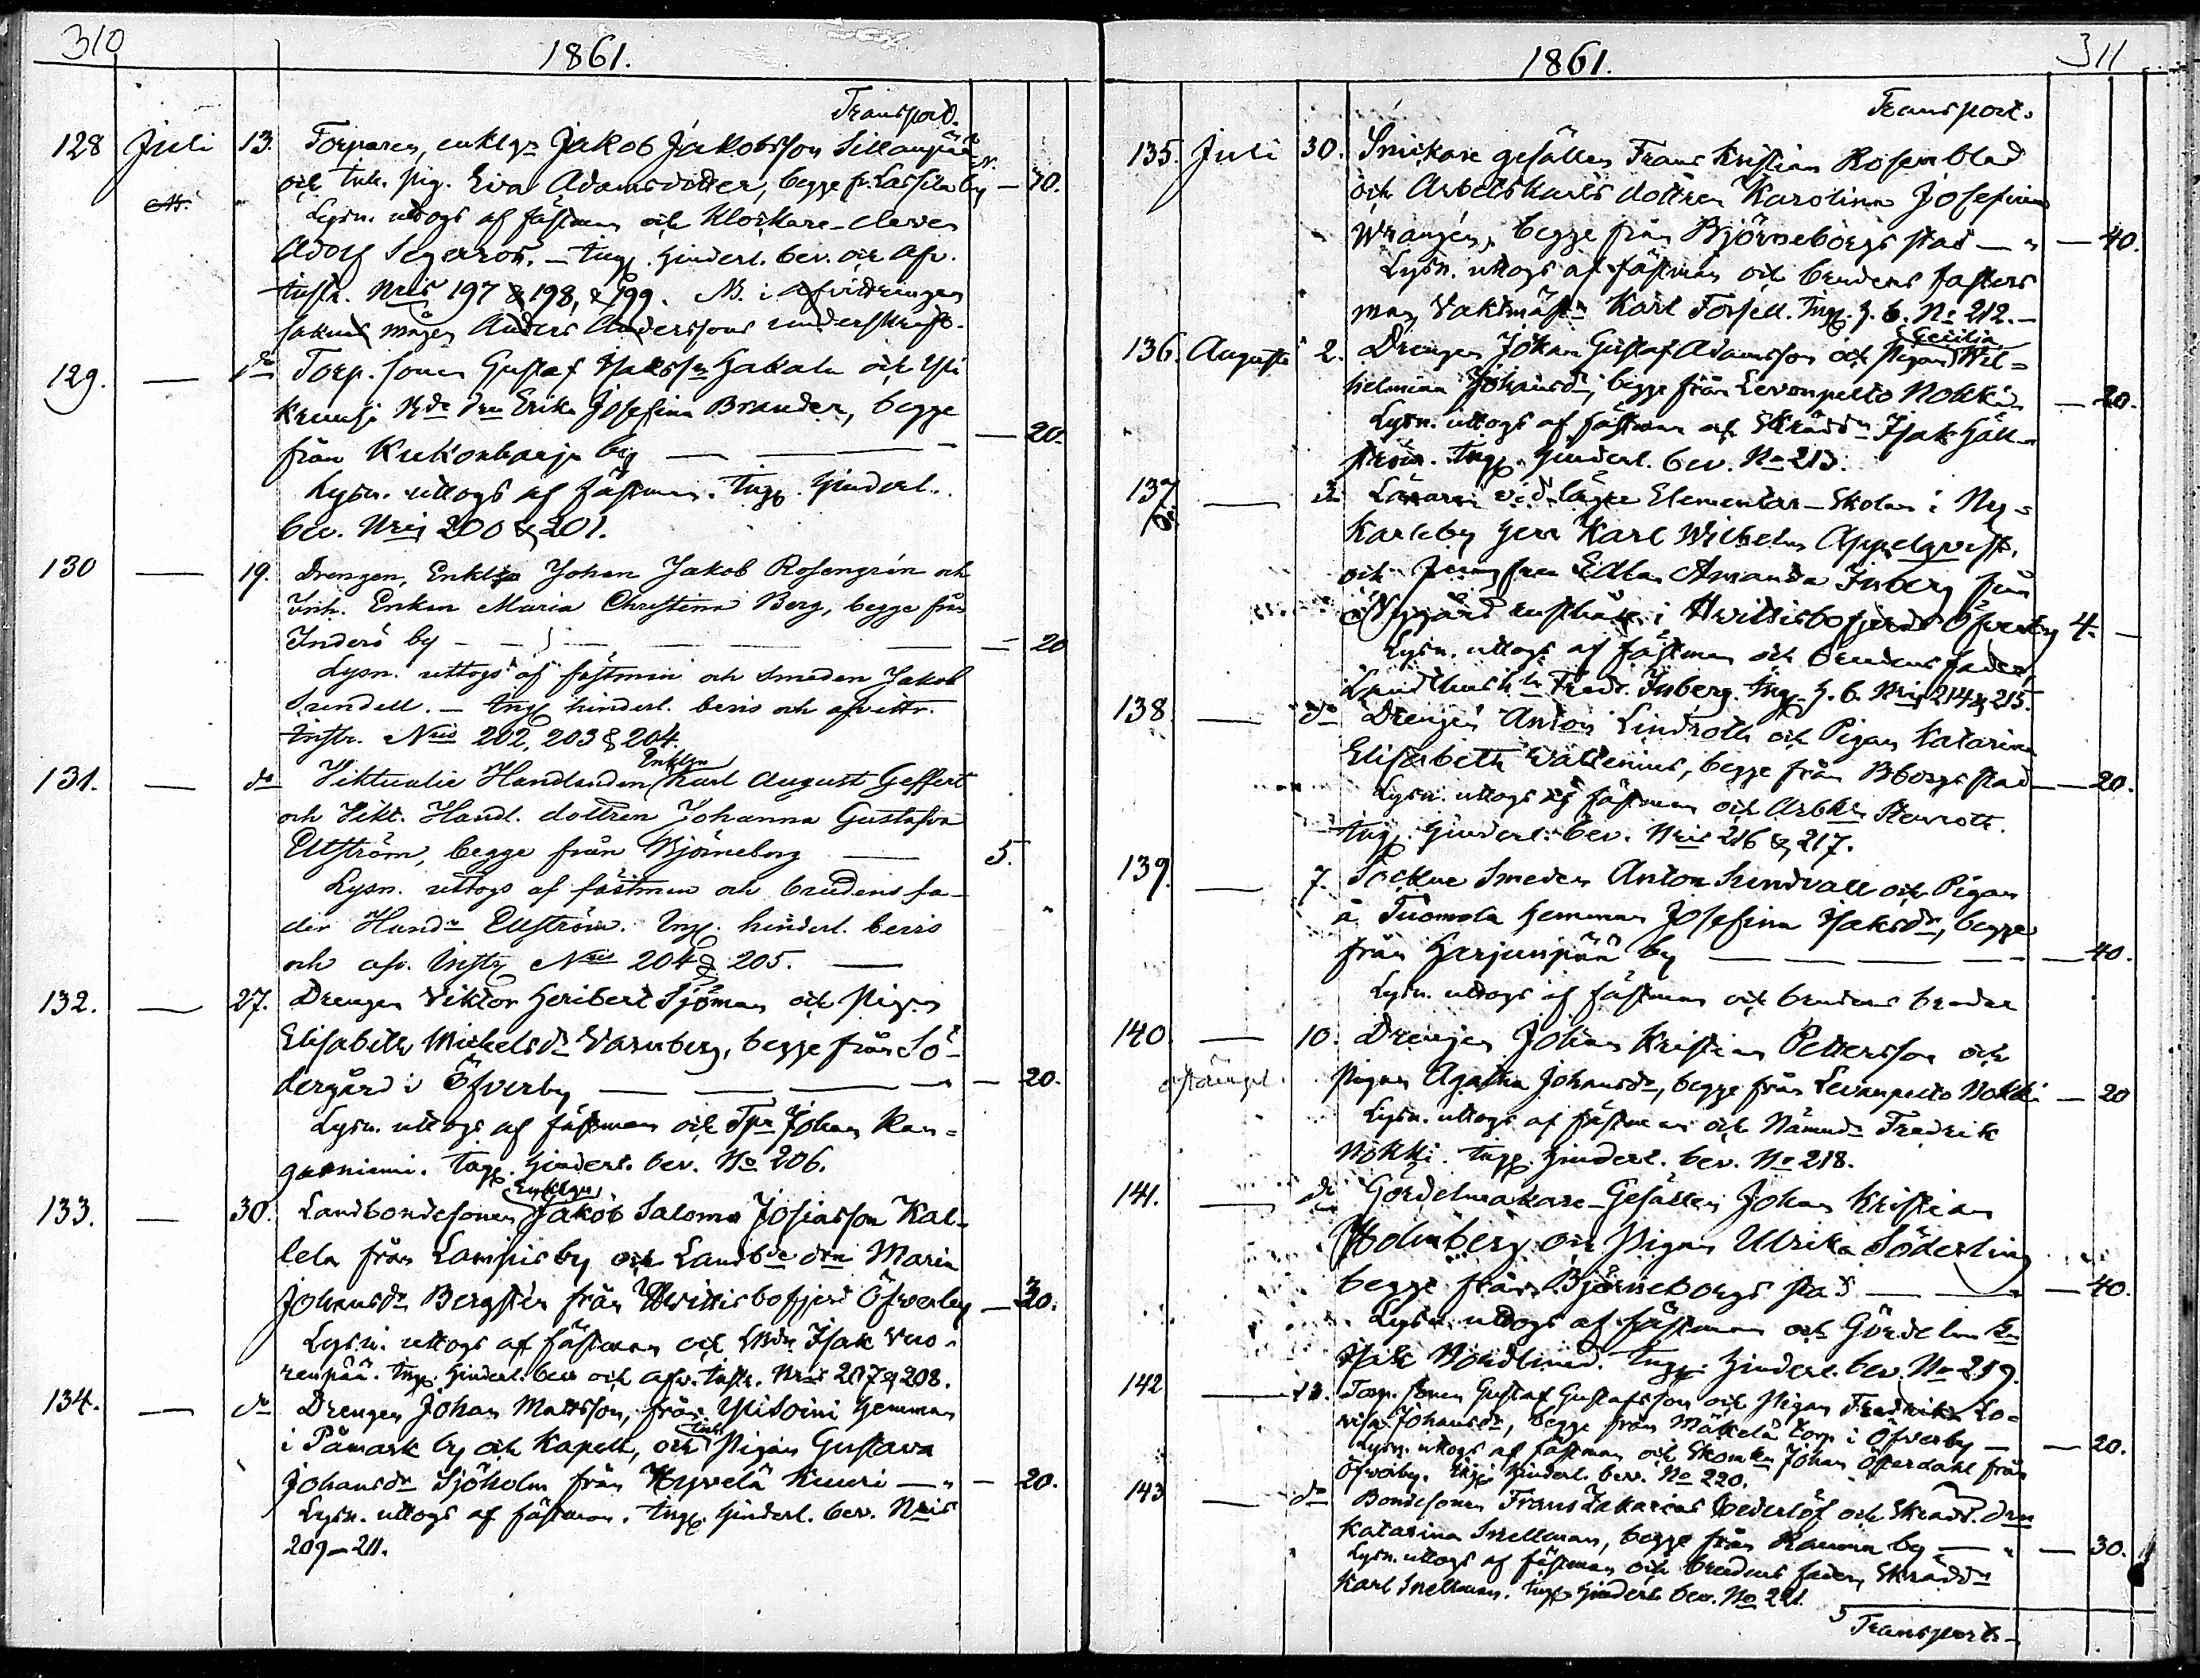 310
1861.
Transport.
128 Juli 13. Torparen, enklgn Jakob Jakobsson Sillanpää
och Inh. pig. Eva Adamsdotter, begge fr. Lassila by — 70.
Lysn. uttogs af fästman och Klockare-eleven
Adolf Segerroos. — Ingg. hinderl. bev. och afv.
instr. Nris 197 & 198, & 199. NB. i afvittringen
saknas mågen Anders Anderssons underskrift.
129. — do Torp. sonen Gustaf Isaksson Hakala och
Bde drn Erika Josefina Brander, begge
från Kukonharja by — — — 20.
Lysn. uttogs af fästman. Ingg. hinderl.
bev. Nris 200 & 201.
130 — 19. Drengen, Enklgn Johan Jakob Rosengrén och
Inh. Enkan Maria Christina Berg, begge från
Inderö by — — — 20
Lysn. uttogs af fästmin och Smeden Jakob
Srendell. — Ingg. hinderl. bevis och afvittr.
Instr. Nris 202, 203 & 204.
Enklgn
131. — do Viktualie Handlanden Karl August Geffert
och Vikt. Handl. dottren Johanna Gustafva
Ellström, begge från Björneborg — 5.
Lysn. uttogs af fästman och brudens fa-
der Handn Ellström. Ingg. hinderl. bevis
och afv. Instr. Nris 204 & 205. —
132. — 27. Drengen Viktor Heribert Sjöman och Pigan
Elisabeth Mickelsdr Varnberg, begge från Sö-
dergård i Öfverby — — — 20.
Lysn. uttogs af fästman och Tpr Johan Kan-
gasniemi. Ingg. Hinderl. bev. No 206.
Enklgn
133. — 30. Landbondesonen Jakob Salomo Josiasson Kal-
lela från Lampis by och Landbde drn Maria
Johansdr Bergstén från Hvittisbofjerd Öfverby — 30.
Lysn. uttogs af fästman och LBdn Isak Vuo-
renpää. Ingg. hinderl. bev och afv. instr. Nris 207 & 208.
134. — do Drengen Johan Mattsson, från Ylisoini hemman
i Påmark by och Kapell, och Inh. Pigan Gustava
Johansdr Sjöholm från Hyvelä Knuri — 20.
Lysn. uttogs af fästman. Ingg. hinderl. bev. Nris
209–211.
311
1861.
Transport.
135. Juli 30. Snickare gesällen Frans Kristian Rosenblad
och Arbetskarls dottren Karolina Josefina
Wrangén, begge från Björneborgs stad — 40.
Lysn. uttogs af fästman och brudens fasters
man Vaktmästn Karl Forsell. Ingg. h. b. No 212. —
136. Augusti 2. Drengen Johan Gustaf Adamsson och Pigan Cecilia Wil-
helmina Johansdr, begge från Levonpelto Nokki — 20.
Lysn. uttogs af fästman och Skräddn Isak Häll-
ström. Ingg. hinderl. bev. No 213.
137 — 3. Läraren vid lägre Elementar-Skolan i Ny-
karleby Herr Karl Wilhelm Appelqvist,
och Jungfrun Edla Amanda Inberg från
Nygård rusthåll i Hvittisbofjerds Öfverby 4. —
Lysn. uttogs af fästman och brudens fader,
Landthush. Fredr. Inberg. Ingg. h. b. Nris 214 & 215.
138. — do Drengen Anton Lindroth och Pigan Katarina
Elisabeth Wallenius, begge från Bborgs stad — 20.
Lysn. uttogs af fästman och Arbkn Stenroth.
Ingg. Hinderl. bev. Nris 216 & 217.
139. — 7. Sockne Smeden Anton Sundvall och Pigan
å Tuomola hemman Josefina Isaksdr, begge
från Harjunpää by — — — 40.
Lysn. uttogs af fästman och brudens broder
140. — 10. Drengen Johan Kristian Pettersson och
Pigan Agatha Johansdr, begge från Levanpelto Nokki — 20
Lysn. uttogs af fästman och Nämndn Fredrik
Nokki. Ingg. hinderl. bev. No 218.
141. — do Gördelmakare-Gesällen Johan Kristian
Holmberg och Pigan Ulrika Söderling
begge från Björneborgs stad — — 40.
Lysn. uttogs af fästman och Gördelm.
Isak Nordlund. Ingg. hinderl. bev. No 219.
142 — Torp. sonen Gustaf Gustafsson och Pigan Fredrika Lo-
visa Johansdr, begge från Mäkelä torp i Öfverby — 20.
Lysn. uttogs af fästman och Skomkn Johan Österdahl från
Öfverby. Ingg. hinderl. bev. No 220.
143 — do Bondesonen Frans Zakarias Cederlöf och Skrädd. drn
Katarina Snellman, begge från Rauma by — 30.
Lysn. uttogs af fästman och brudens fader, Skräddn
Karl Snellman. Ingg. hinderl. bev. No 221.
Transport.